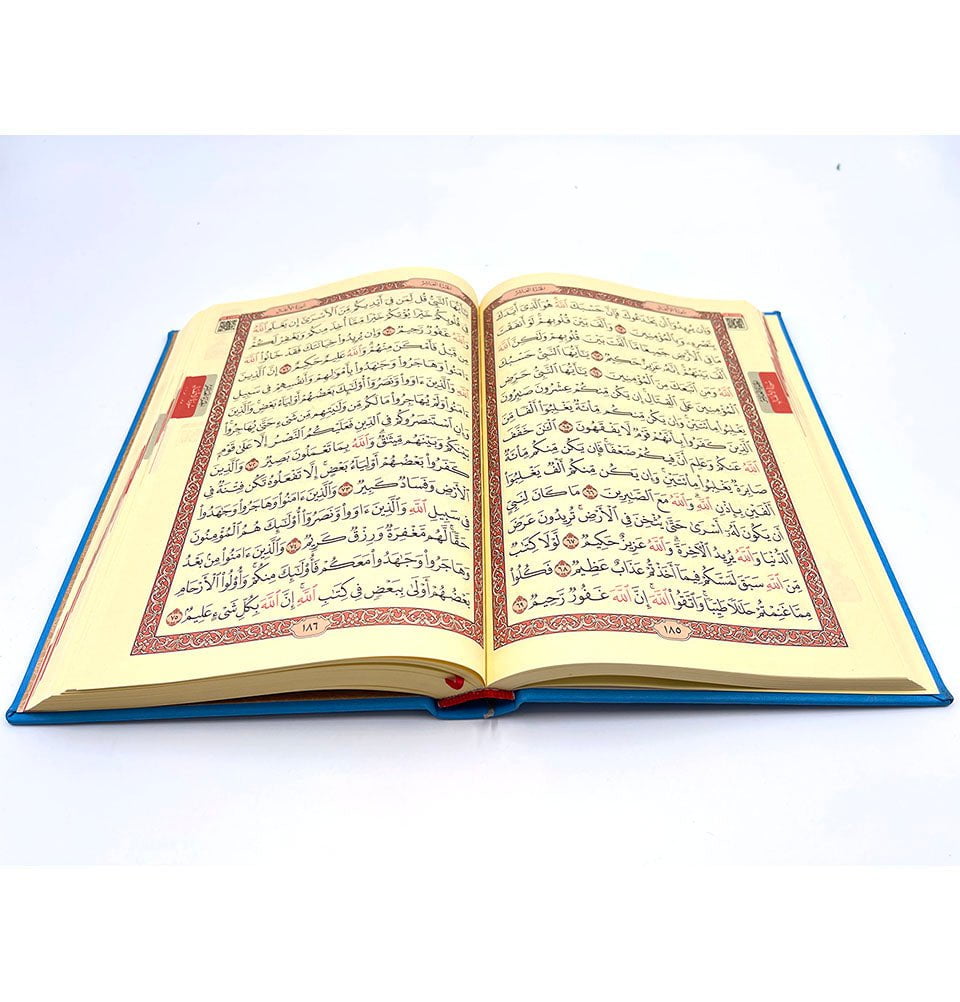 الجزء العاشر
سورة الأنفال
وَإِن يُرِيدُوٓا۟ أَن يَخْدَعُوكَ فَإِنَّ حَسْبَكَ ٱللَّهُ هُوَ ٱلَّذِىٓ أَيَّدَكَ
بِنَصْرِهِۦ وَبِٱلْمُؤْمِنِينَ ٦٢ وَأَلَّفَ بَيْنَ قُلُوبِهِمْ لَوْ أَنفَقْتَ
مَا فِى ٱلْأَرْضِ جَمِيعًا مَّآ أَلَّفْتَ بَيْنَ قُلُوبِهِمْ وَلَٰكِنَّ ٱللَّهَ
أَلَّفَ بَيْنَهُمْ إِنَّهُۥ عَزِيزٌ حَكِيمٌ ٦٣ يَٰٓأَيُّهَا ٱلنَّبِىُّ حَسْبُكَ
ٱللَّهُ وَمَنِ ٱتَّبَعَكَ مِنَ ٱلْمُؤْمِنِينَ ٦٤ يَٰٓأَيُّهَا ٱلنَّبِىُّ حَرِّضِ
ٱلْمُؤْمِنِينَ عَلَى ٱلْقِتَالِ إِن يَكُن مِّنكُمْ عِشْرُونَ صَٰبِرُونَ
يَغْلِبُوا۟ مِا۟ئَتَيْنِ وَإِن يَكُن مِّنكُم مِّا۟ئَةٌ يَغْلِبُوٓا۟ أَلْفًا مِّنَ
ٱلَّذِينَ كَفَرُوا۟ بِأَنَّهُمْ قَوْمٌ لَّا يَفْقَهُونَ ٦٥ ٱلْـَٰٔنَ خَفَّفَ
ٱللَّهُ عَنكُمْ وَعَلِمَ أَنَّ فِيكُمْ ضَعْفًا فَإِن يَكُن مِّنكُم مِّا۟ئَةٌ
صَابِرَةٌ يَغْلِبُوا۟ مِا۟ئَتَيْنِ وَإِن يَكُن مِّنكُمْ أَلْفٌ يَغْلِبُوٓا۟
أَلْفَيْنِ بِإِذْنِ ٱللَّهِ وَٱللَّهُ مَعَ ٱلصَّٰبِرِينَ ٦٦ مَا كَانَ لِنَبِىٍّ
أَن يَكُونَ لَهُۥٓ أَسْرَىٰ حَتَّىٰ يُثْخِنَ فِى ٱلْأَرْضِ تُرِيدُونَ عَرَضَ
ٱلدُّنْيَا وَٱللَّهُ يُرِيدُ ٱلْءَاخِرَةَ وَٱللَّهُ عَزِيزٌ حَكِيمٌ ٦٧ لَّوْلَا كِتَٰبٌ
مِّنَ ٱللَّهِ سَبَقَ لَمَسَّكُمْ فِيمَآ أَخَذْتُمْ عَذَابٌ عَظِيمٌ ٦٨ فَكُلُوا۟
مِمَّا غَنِمْتُمْ حَلَٰلًا طَيِّبًا وَٱتَّقُوا۟ ٱللَّهَ إِنَّ ٱللَّهَ غَفُورٌ رَّحِيمٌ ٦٩
١٨٥
الجزء العاشر
سورة الأنفال
يَٰٓأَيُّهَا ٱلنَّبِىُّ قُل لِّمَن فِىٓ أَيْدِيكُم مِّنَ ٱلْأَسْرَىٰٓ إِن يَعْلَمِ ٱللَّهُ
فِى قُلُوبِكُمْ خَيْرًا يُؤْتِكُمْ خَيْرًا مِّمَّآ أُخِذَ مِنكُمْ وَيَغْفِرْ لَكُمْ
وَٱللَّهُ غَفُورٌ رَّحِيمٌ ٧٠ وَإِن يُرِيدُوا۟ خِيَانَتَكَ فَقَدْ خَانُوا۟ ٱللَّهَ
مِن قَبْلُ فَأَمْكَنَ مِنْهُمْ وَٱللَّهُ عَلِيمٌ حَكِيمٌ ٧١ إِنَّ ٱلَّذِينَ
ءَامَنُوا۟ وَهَاجَرُوا۟ وَجَٰهَدُوا۟ بِأَمْوَٰلِهِمْ وَأَنفُسِهِمْ فِى سَبِيلِ
ٱللَّهِ وَٱلَّذِينَ ءَاوَوا۟ وَّنَصَرُوٓا۟ أُو۟لَٰٓئِكَ بَعْضُهُمْ أَوْلِيَآءُ بَعْضٍ وَٱلَّذِينَ
ءَامَنُوا۟ وَلَمْ يُهَاجِرُوا۟ مَا لَكُم مِّن وَلَٰيَتِهِم مِّن شَىْءٍ حَتَّىٰ يُهَاجِرُوا۟
وَإِنِ ٱسْتَنصَرُوكُمْ فِى ٱلدِّينِ فَعَلَيْكُمُ ٱلنَّصْرُ إِلَّا عَلَىٰ قَوْمٍۭ
بَيْنَكُمْ وَبَيْنَهُم مِّيثَٰقٌ وَٱللَّهُ بِمَا تَعْمَلُونَ بَصِيرٌ ٧٢ وَٱلَّذِينَ
كَفَرُوا۟ بَعْضُهُمْ أَوْلِيَآءُ بَعْضٍ إِلَّا تَفْعَلُوهُ تَكُن فِتْنَةٌ فِى
ٱلْأَرْضِ وَفَسَادٌ كَبِيرٌ ٧٣ وَٱلَّذِينَ ءَامَنُوا۟ وَهَاجَرُوا۟ وَجَٰهَدُوا۟
فِى سَبِيلِ ٱللَّهِ وَٱلَّذِينَ ءَاوَوا۟ وَّنَصَرُوٓا۟ أُو۟لَٰٓئِكَ هُمُ ٱلْمُؤْمِنُونَ
حَقًّا لَّهُم مَّغْفِرَةٌ وَرِزْقٌ كَرِيمٌ ٧٤ وَٱلَّذِينَ ءَامَنُوا۟ مِنۢ بَعْدُ
وَهَاجَرُوا۟ وَجَٰهَدُوا۟ مَعَكُمْ فَأُو۟لَٰٓئِكَ مِنكُمْ وَأُو۟لُوا۟ ٱلْأَرْحَامِ
بَعْضُهُمْ أَوْلَىٰ بِبَعْضٍ فِى كِتَٰبِ ٱللَّهِ إِنَّ ٱللَّهَ بِكُلِّ شَىْءٍ عَلِيمٌۢ ٧٥
١٨٦